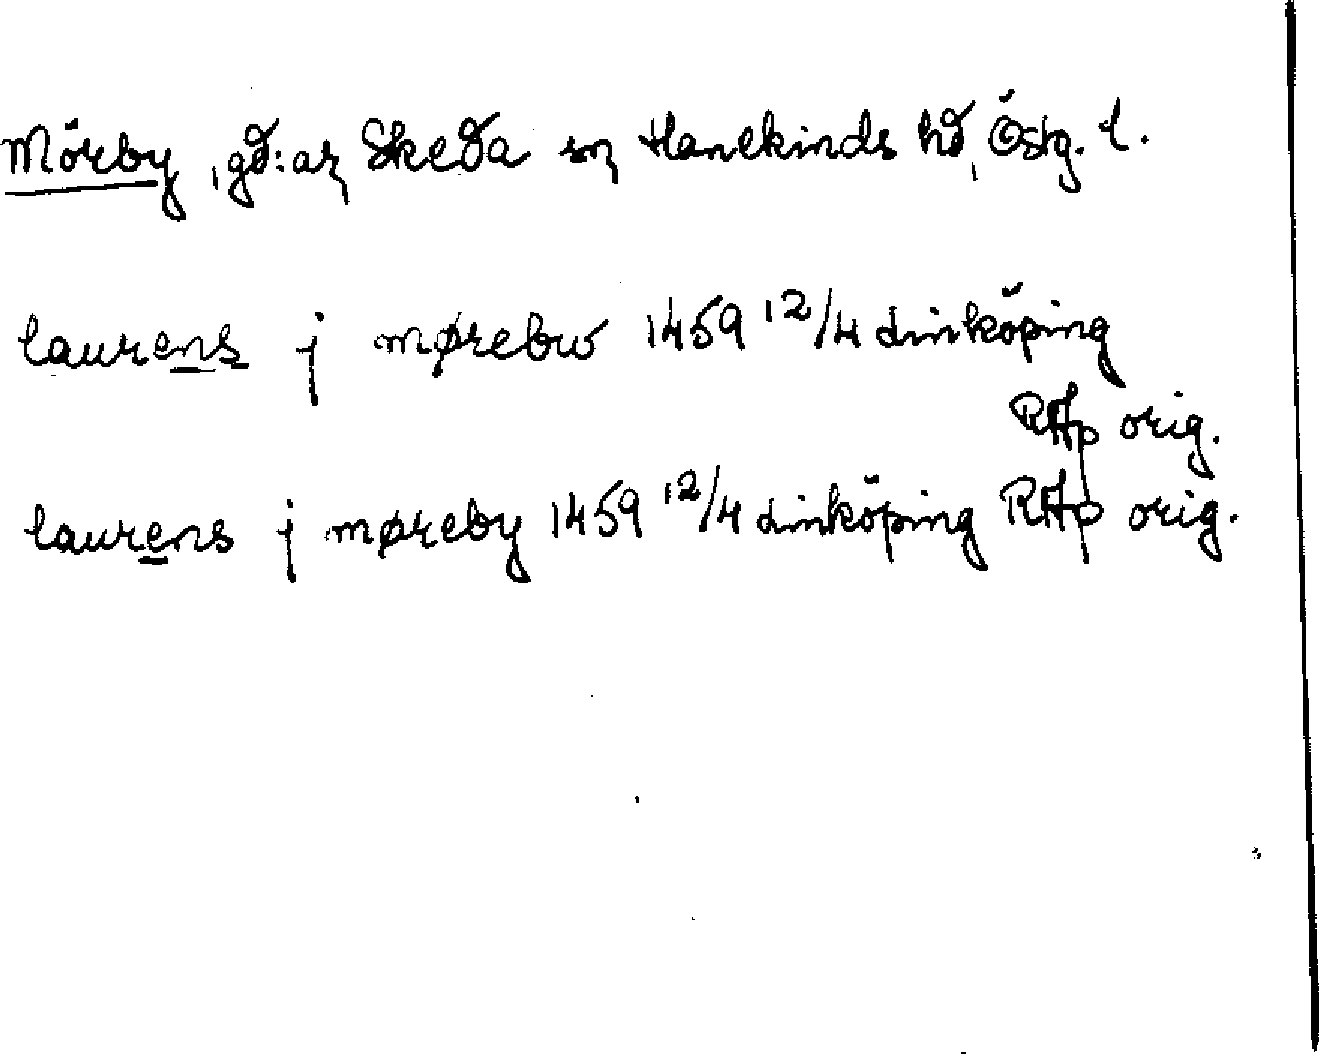 Mörby, gd:ar, Skeda sn, Hanekinds hd, Östg. l.
laurens j mørebw 1459 12/4 Linköping
RAp orig.
laurens j møreby 1459 12/4 Linköping RAp orig.